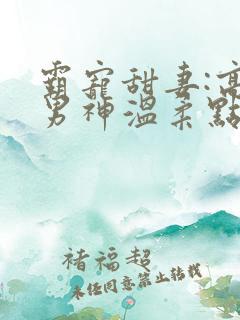 霸寵甜妻:高
男神溫柔點
褚福超
未经同意禁止转载